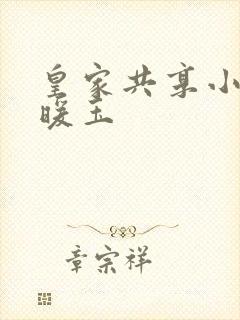 皇家共享小
暖玉
章宗祥